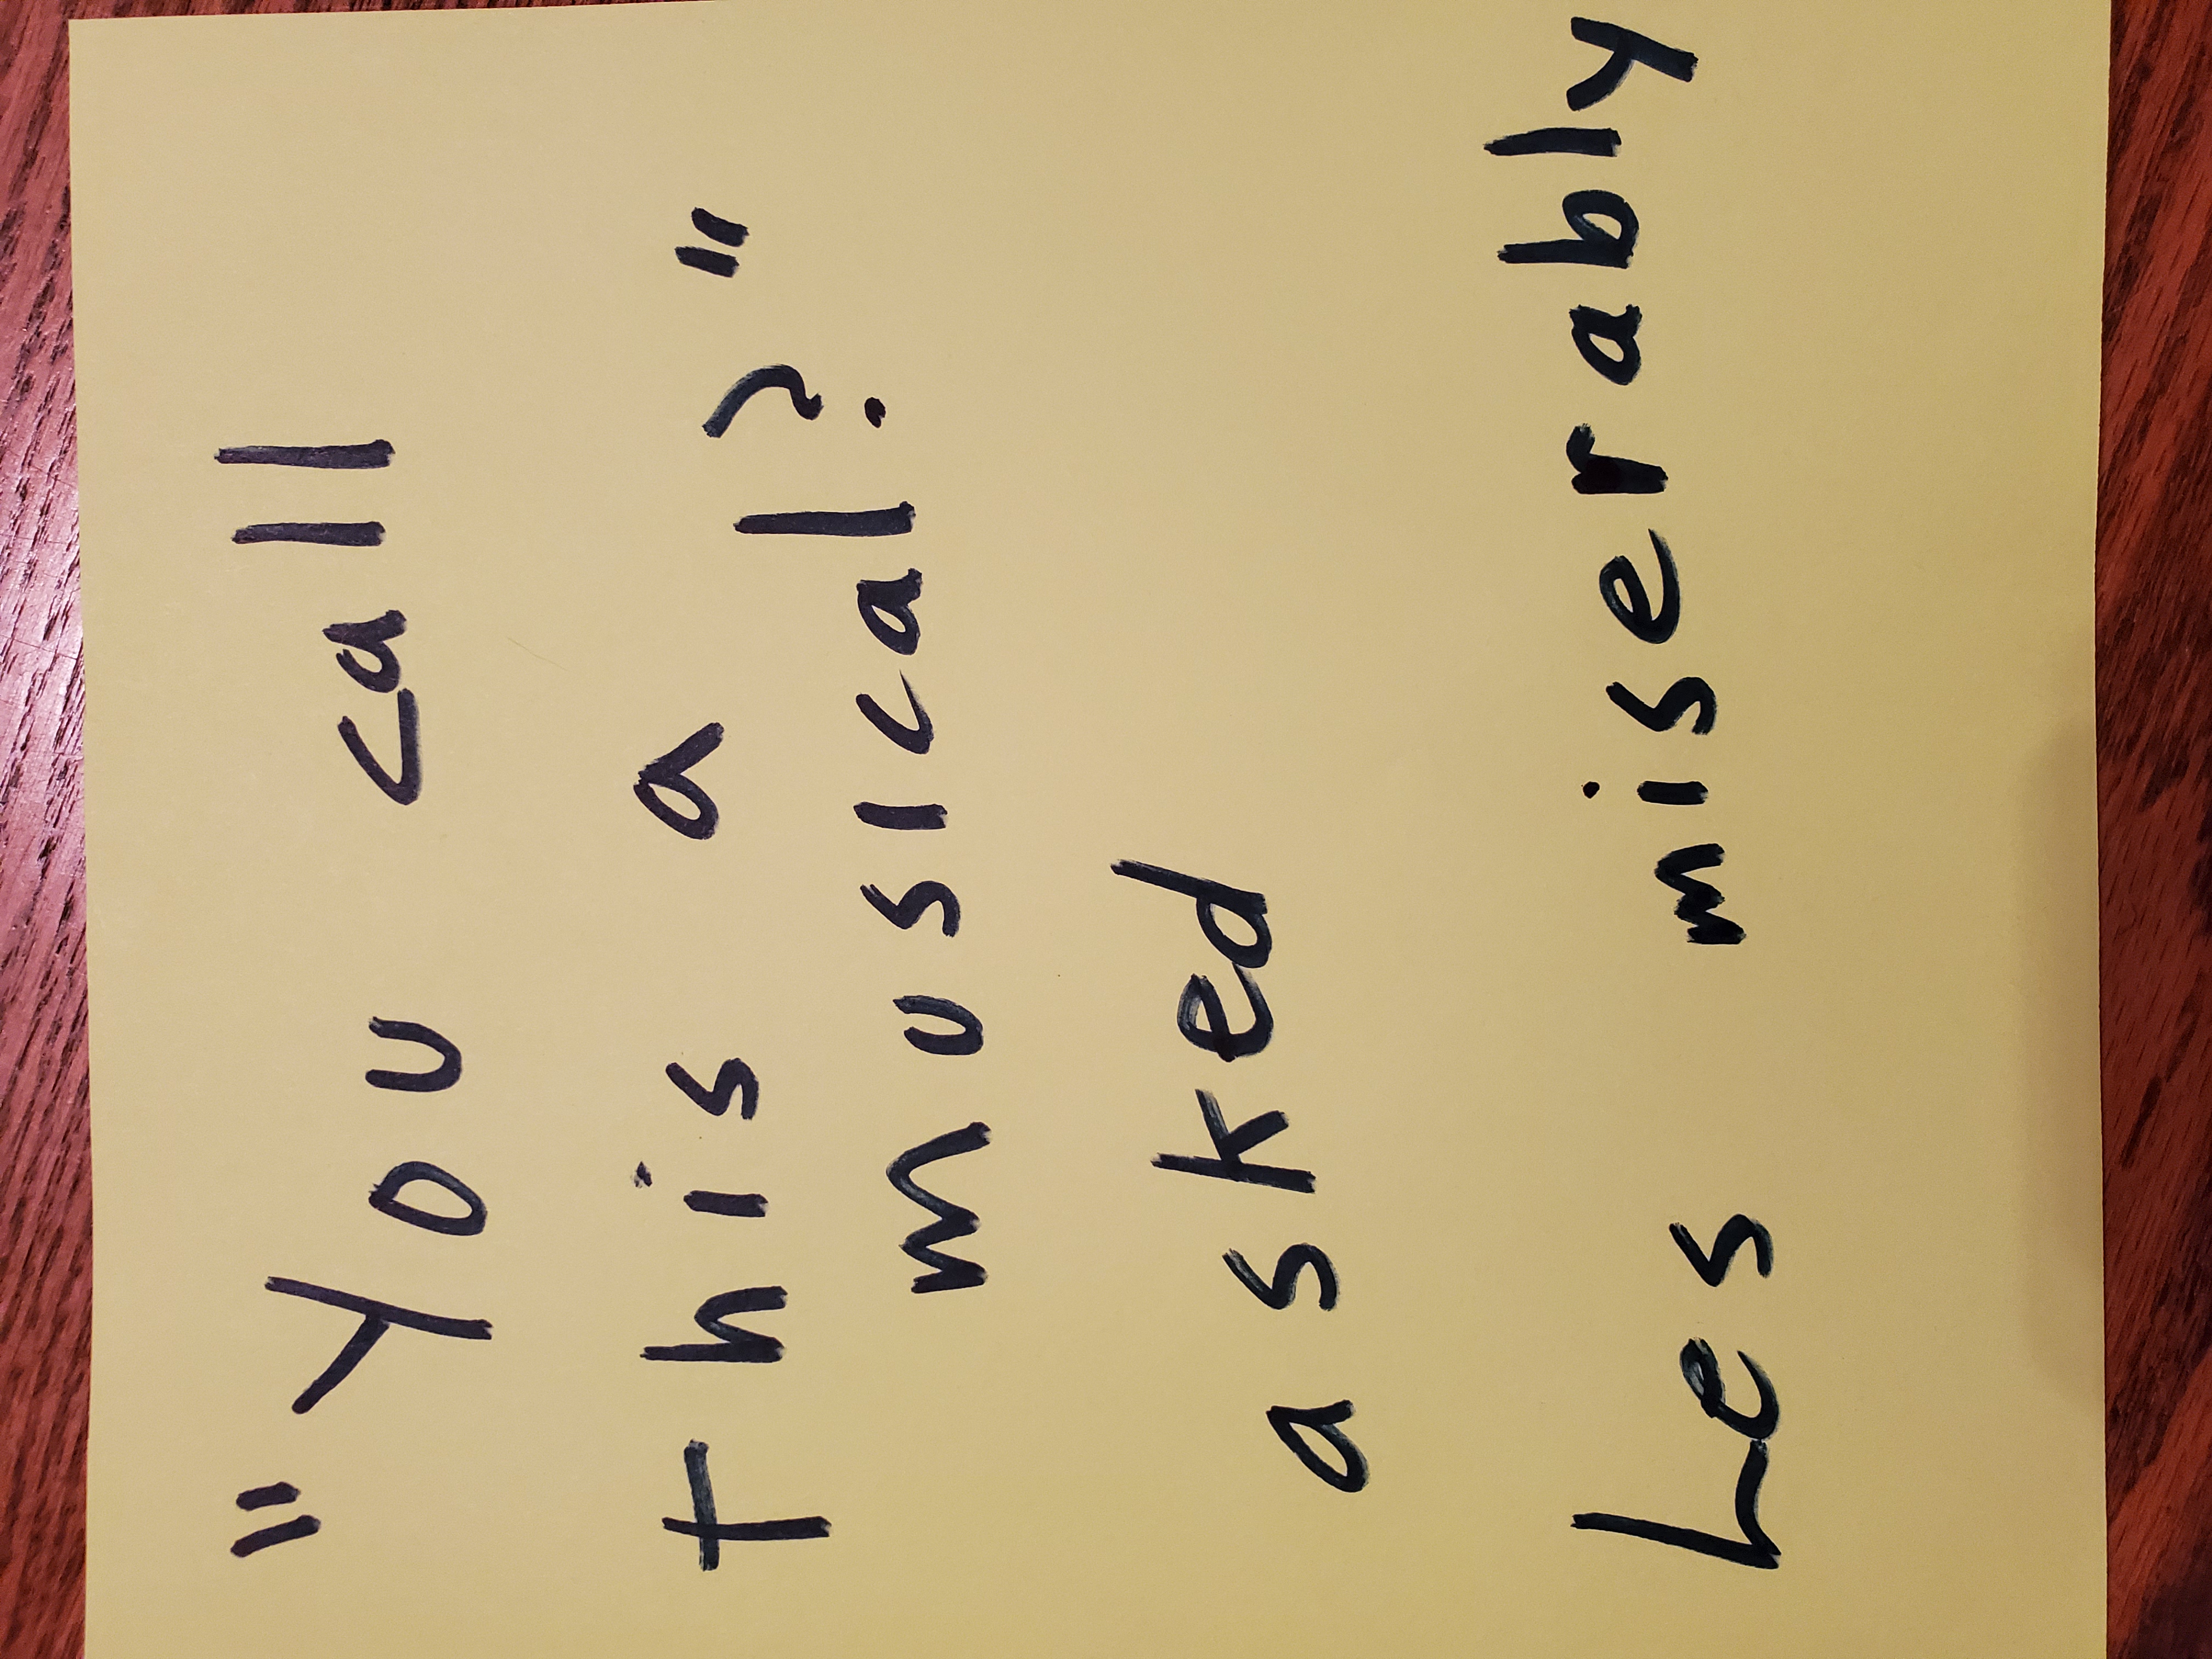 "You call
this a
musical?"
asked
Les miserably